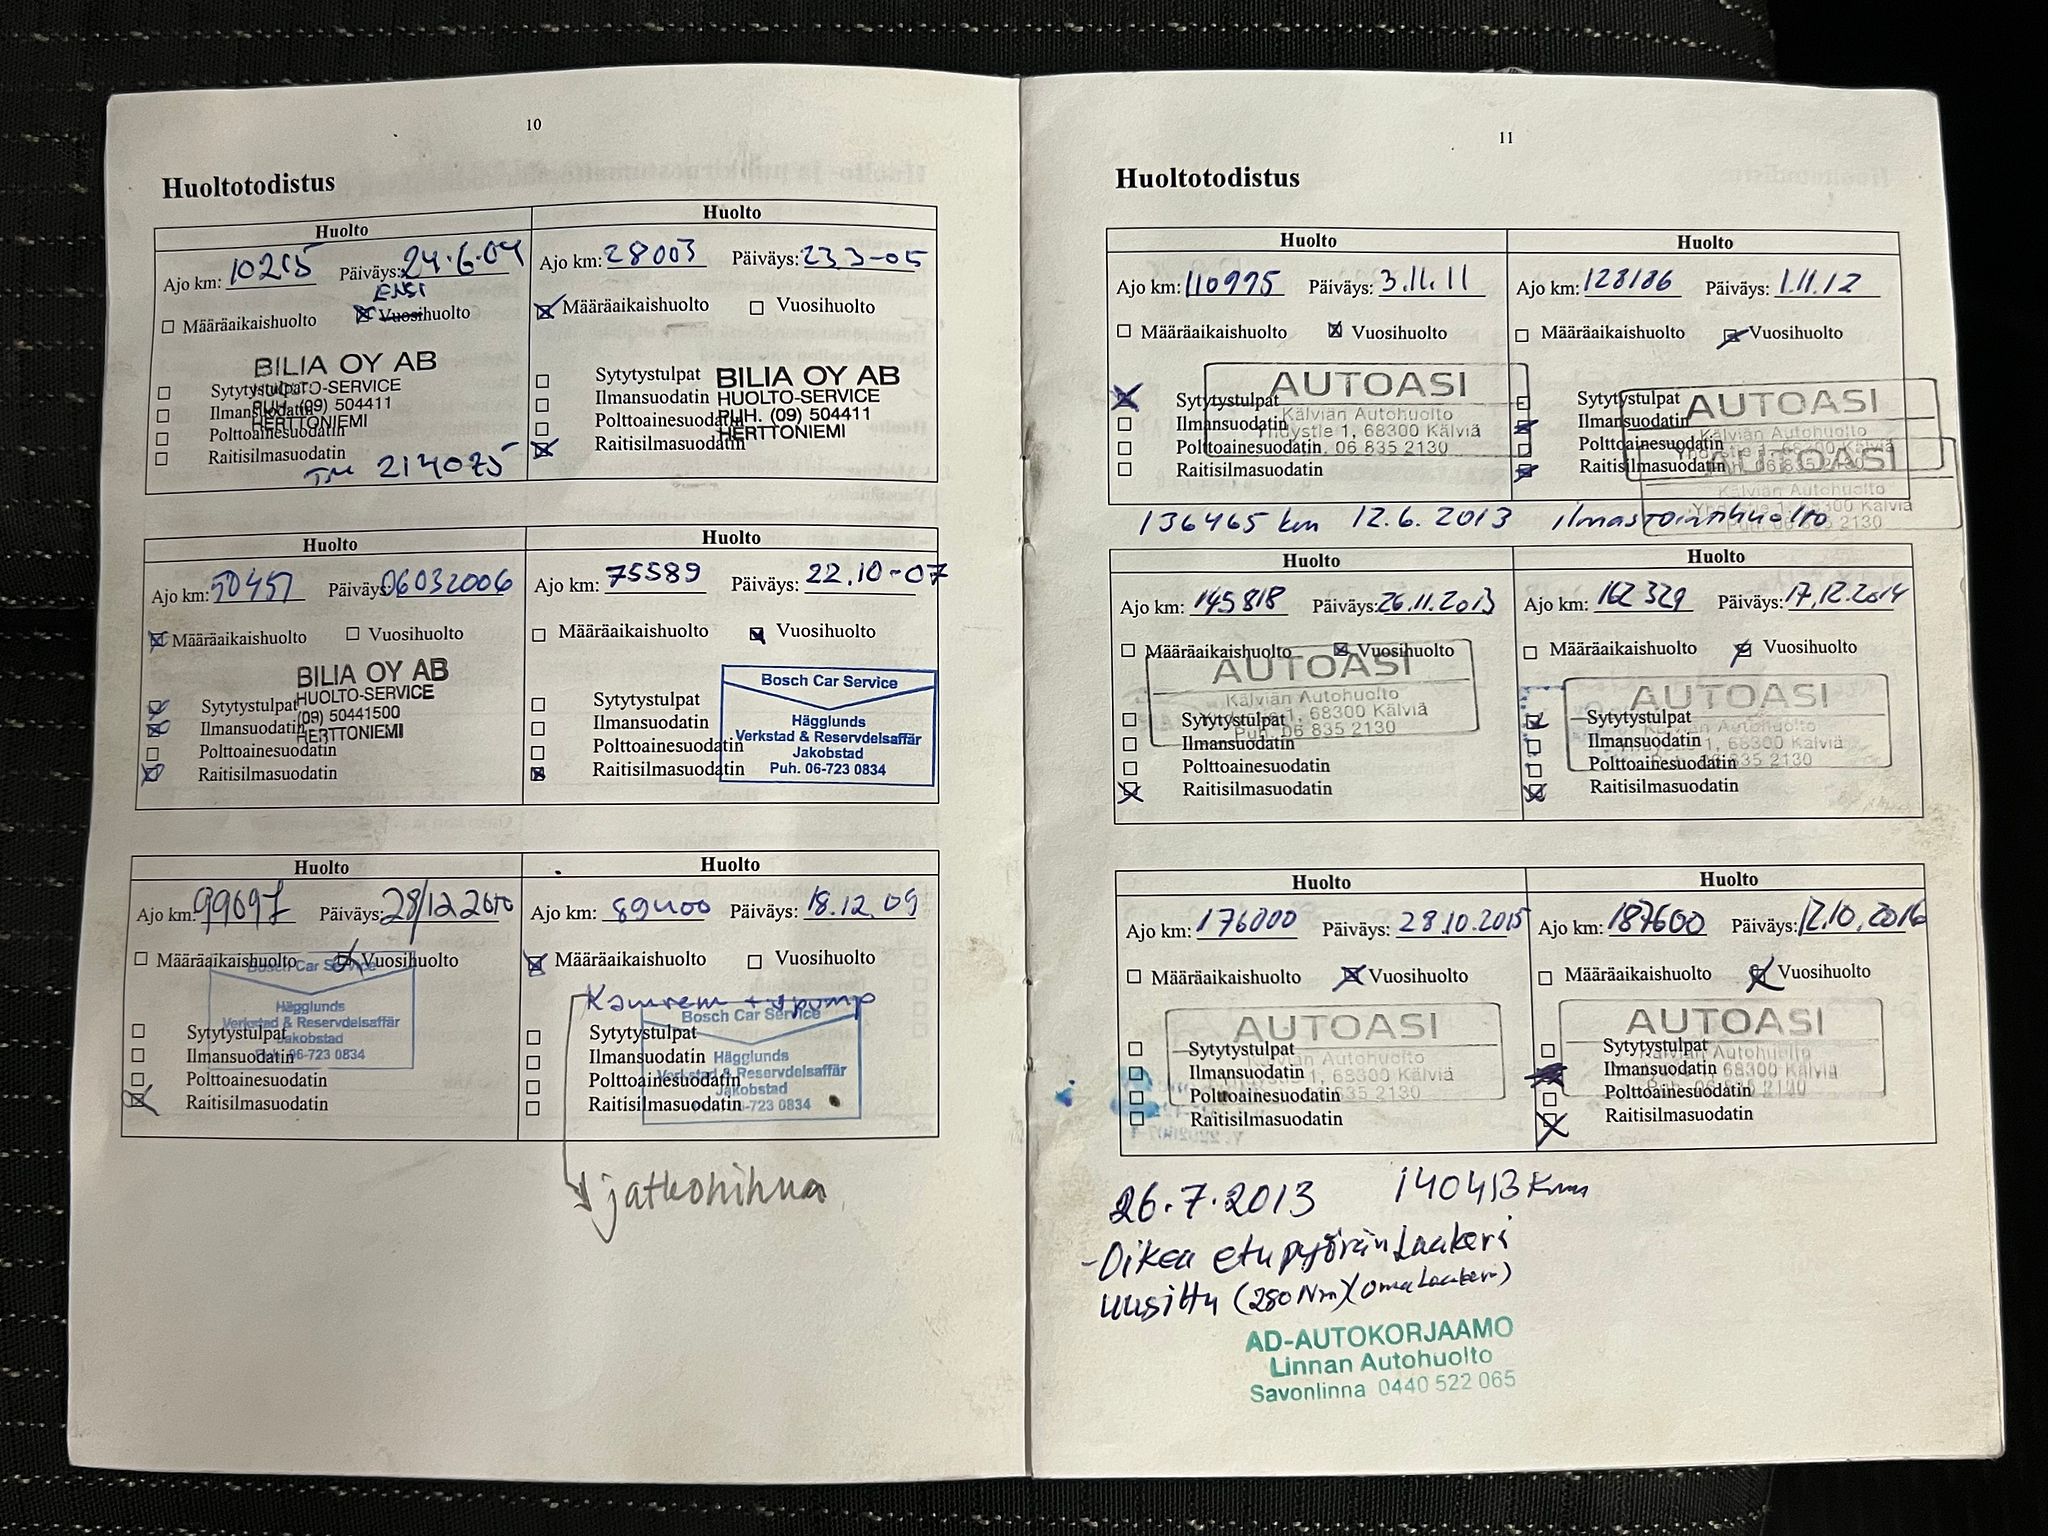 10
Huoltotodistus
Huolto
Ajo km: 10215 Päiväys: 24.6.04
ENSI
Määräaikaishuolto Vuosihuolto
BILIA OY AB
HUOLTO-SERVICE
PUH. (09) 504411
HERTTONIEMI
Sytytystulpat
Ilmansuodatin
Polttoainesuodatin
Raitisilmasuodatin
214075
Huolto
Ajo km: 28003 Päiväys: 23.3-05
Määräaikaishuolto Vuosihuolto
Sytytystulpat
Ilmansuodatin
Polttoainesuodatin
Raitisilmasuodatin
BILIA OY AB
HUOLTO-SERVICE
PUH. (09) 504411
HERTTONIEMI
Huolto
Ajo km: 50451 Päiväys: 06032006
Määräaikaishuolto Vuosihuolto
BILIA OY AB
HUOLTO-SERVICE
(09) 50441500
HERTTONIEMI
Sytytystulpat
Ilmansuodatin
Polttoainesuodatin
Raitisilmasuodatin
Huolto
Ajo km: 75589 Päiväys: 22.10-07
Määräaikaishuolto Vuosihuolto
Sytytystulpat
Ilmansuodatin
Polttoainesuodatin
Raitisilmasuodatin
Bosch Car Service
Hägglunds
Verkstad & Reservdelsaffär
Jakobstad
Puh. 06-723 0834
Huolto
Ajo km: 99697 Päiväys: 28/12 2010
Määräaikaishuolto Vuosihuolto
Bosch Car Service
Hägglunds
Verkstad & Reservdelsaffär
Jakobstad
Puh. 06-723 0834
Sytytystulpat
Ilmansuodatin
Polttoainesuodatin
Raitisilmasuodatin
Huolto
Ajo km: 89400 Päiväys: 18.12.09
Määräaikaishuolto Vuosihuolto
Kamrem + vpump
Sytytystulpat
Ilmansuodatin
Polttoainesuodatin
Raitisilmasuodatin
Bosch Car Service
Hägglunds
Verkstad & Reservdelsaffär
Jakobstad
Puh. 06-723 0834
jatkohihna
11
Huoltotodistus
Huolto
Ajo km: 110995 Päiväys: 3.11.11
Määräaikaishuolto Vuosihuolto
AUTOASI
Kälviän Autohuolto
Yhdystie 1, 68300 Kälviä
Puh. 06 835 2130
Sytytystulpat
Ilmansuodatin
Polttoainesuodatin
Raitisilmasuodatin
Huolto
Ajo km: 128186 Päiväys: 1.11.12
Määräaikaishuolto Vuosihuolto
Sytytystulpat
Ilmansuodatin
Polttoainesuodatin
Raitisilmasuodatin
AUTOASI
Kälviän Autohuolto
Yhdystie 1, 68300 Kälviä
Puh. 06 835 2130
AUTOASI
Kälviän Autohuolto
Yhdystie 1, 68300 Kälviä
Puh. 06 835 2130
136465 km 12.6.2013 ilmastointihuolto
Huolto
Ajo km: 145818 Päiväys: 26.11.2013
Määräaikaishuolto Vuosihuolto
AUTOASI
Kälviän Autohuolto
Yhdystie 1, 68300 Kälviä
Puh. 06 835 2130
Sytytystulpat
Ilmansuodatin
Polttoainesuodatin
Raitisilmasuodatin
Huolto
Ajo km: 162329 Päiväys: 17.12.2014
Määräaikaishuolto Vuosihuolto
AUTOASI
Kälviän Autohuolto
Yhdystie 1, 68300 Kälviä
Puh. 06 835 2130
Sytytystulpat
Ilmansuodatin
Polttoainesuodatin
Raitisilmasuodatin
Huolto
Ajo km: 176000 Päiväys: 28.10.2015
Määräaikaishuolto Vuosihuolto
AUTOASI
Kälviän Autohuolto
Yhdystie 1, 68300 Kälviä
Puh. 06 835 2130
Sytytystulpat
Ilmansuodatin
Polttoainesuodatin
Raitisilmasuodatin
Huolto
Ajo km: 187600 Päiväys: 12.10.2016
Määräaikaishuolto Vuosihuolto
AUTOASI
Kälviän Autohuolto
Yhdystie 1, 68300 Kälviä
Puh. 06 835 2130
Sytytystulpat
Ilmansuodatin
Polttoainesuodatin
Raitisilmasuodatin
26.7.2013 140413 Km
-Oikea etupyörän Laakeri
uusittu (280 Nm)(oma Laakeri)
AD-AUTOKORJAAMO
Linnan Autohuolto
Savonlinna 0440 522 065